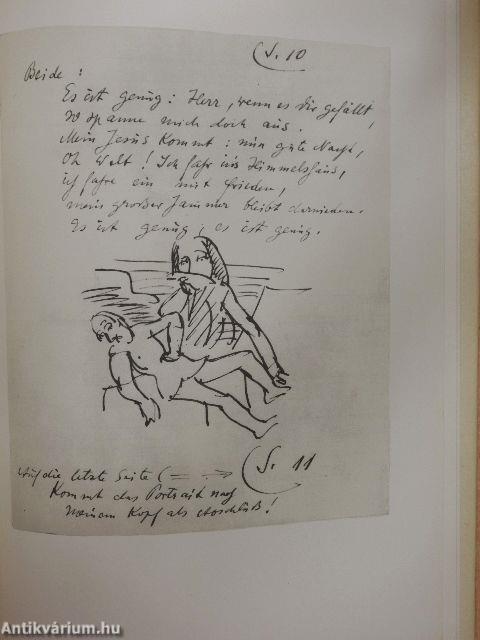 (S. 10
Beide :
Es ist genug : Herr, wenn es Dir gefällt,
so spanne mich doch aus.
Mein Jesus kommt : nun gute Nacht,
Oh Welt ! Ich fahr ins Himmelshaus,
ich fahre ein mit Frieden,
mein großer Jammer bleibt darnieden.
Es ist genug, es ist genug.
Auf die letzte Seite (= →
(S. 11
Kommt das Portrait nach
meinem Kopf als Abschluß !
Antikvárium.hu